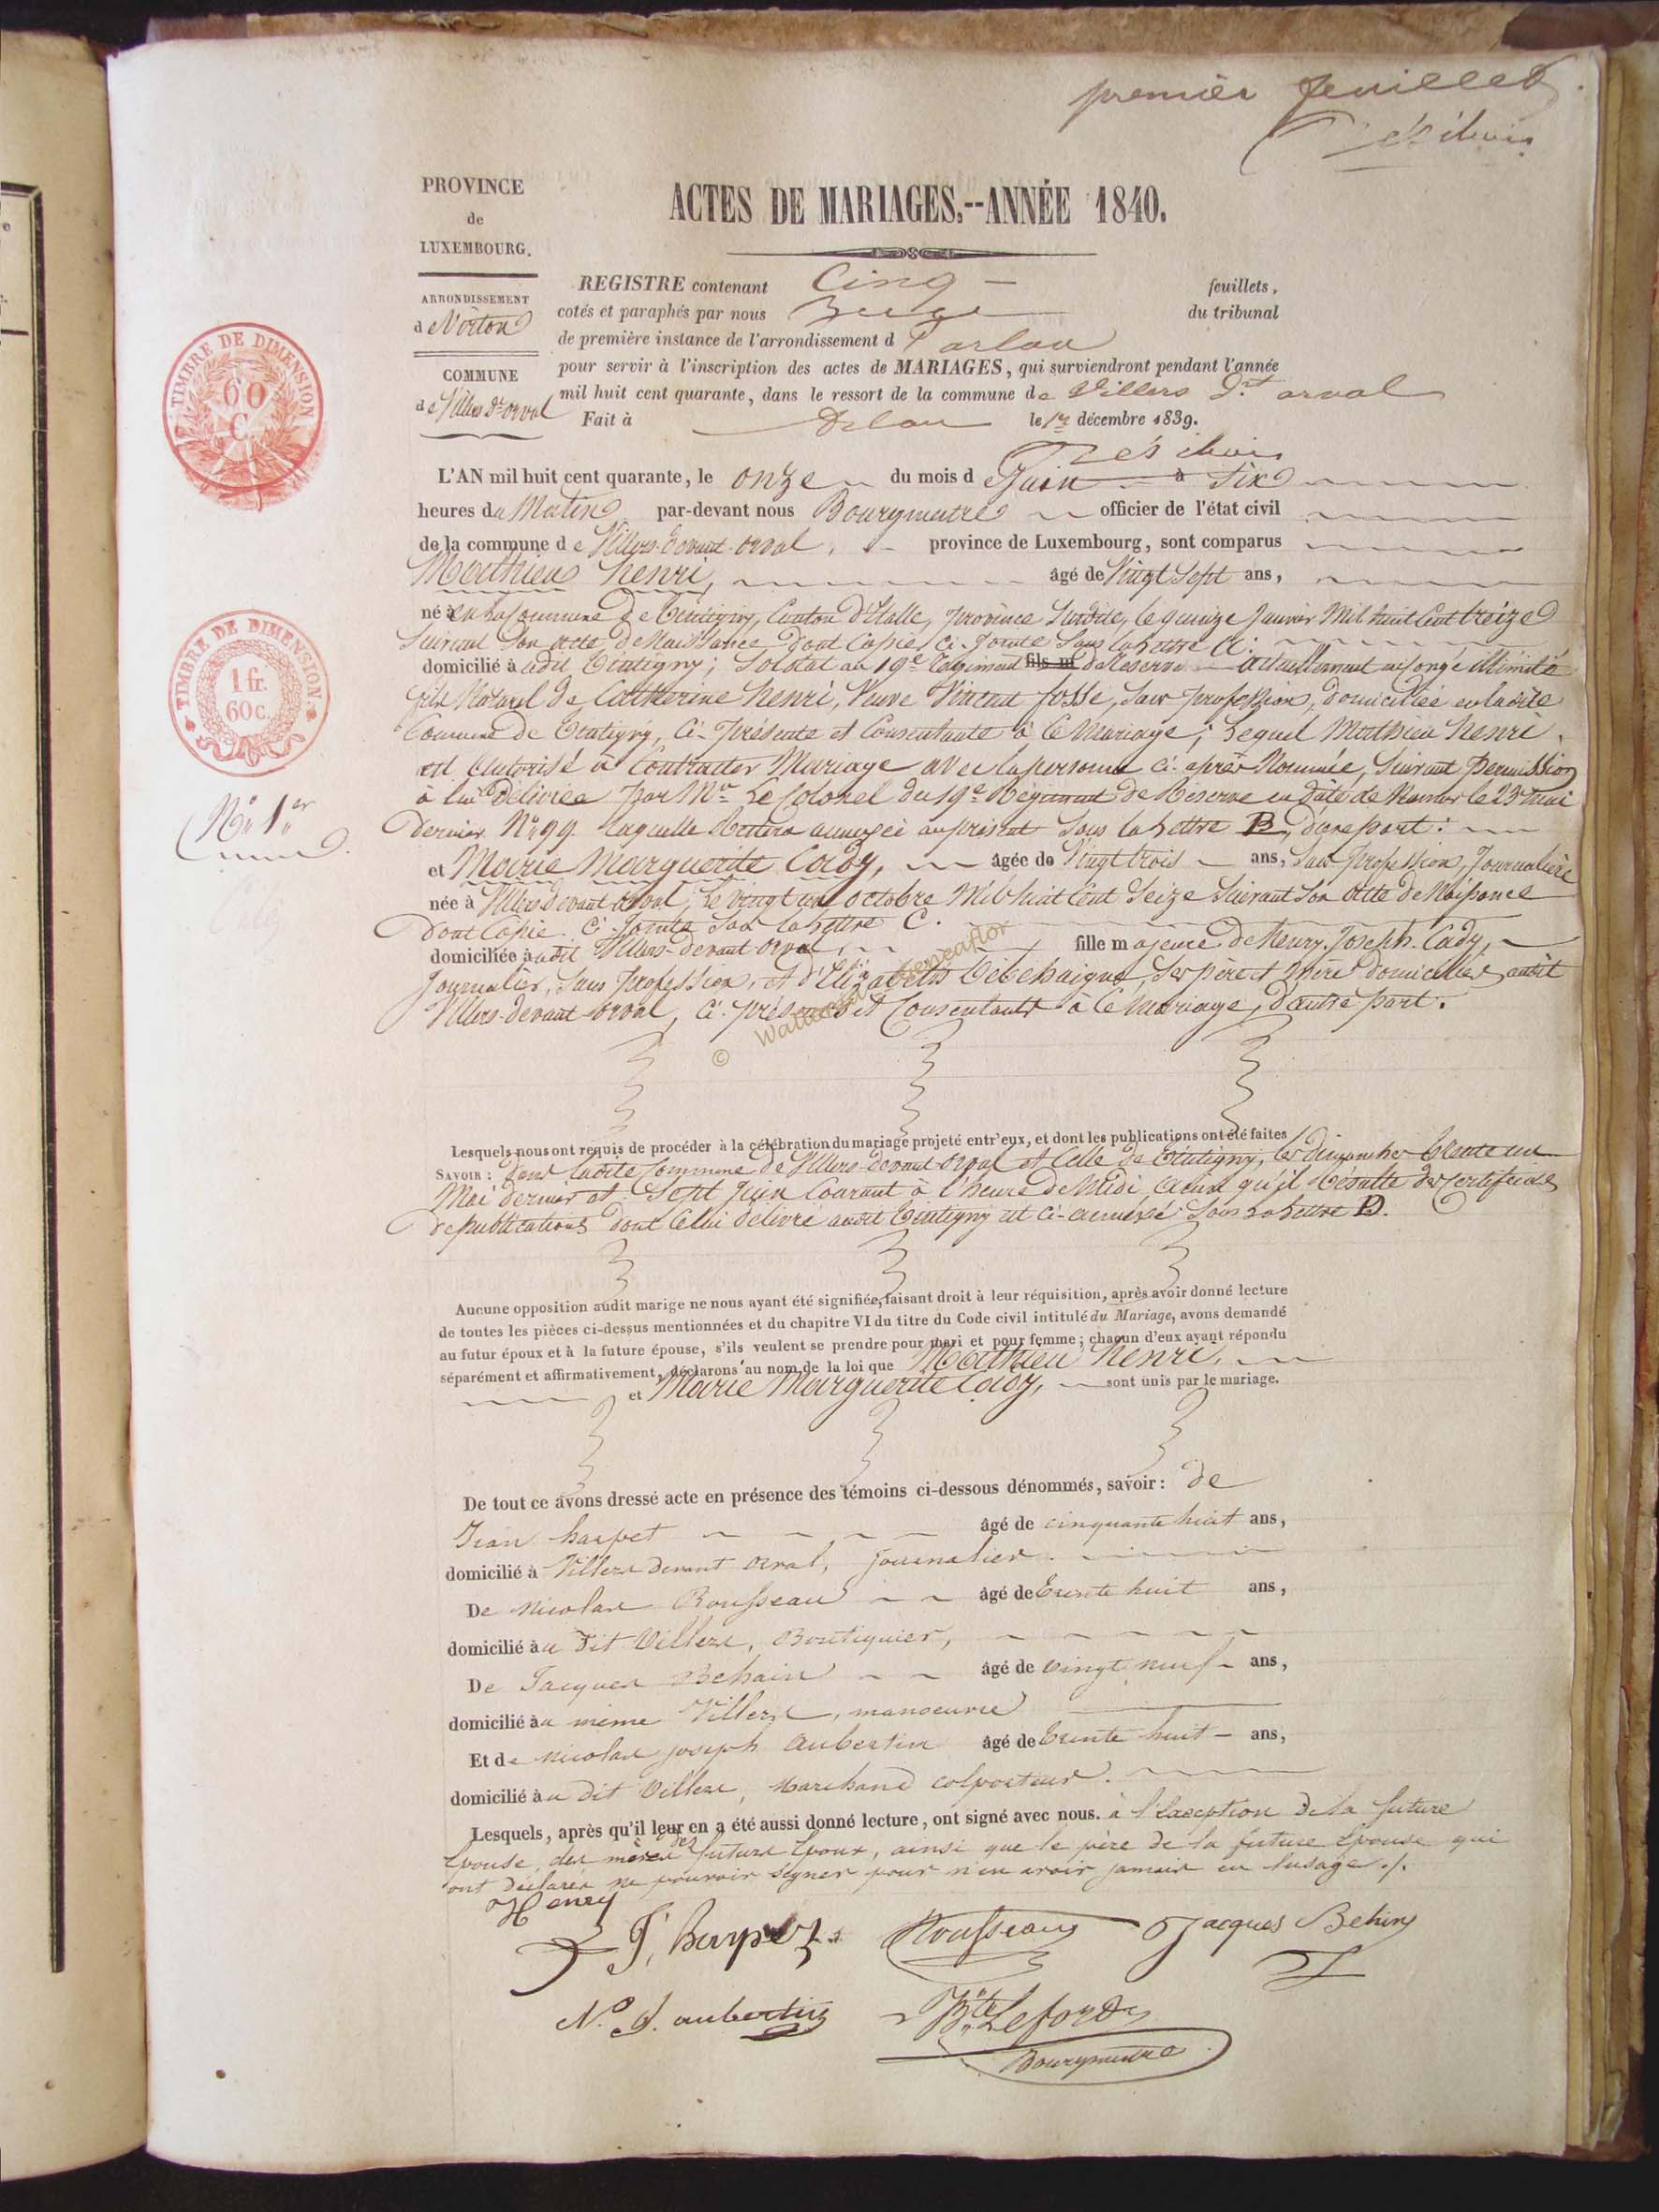 premier feuillet
PROVINCE
de
LUXEMBOURG.
ACTES DE MARIAGES.--ANNÉE 1840.
ARRONDISSEMENT
de Virton
COMMUNE
de Villers dt orval
REGISTRE contenant Cinq feuillets,
cotés et paraphés par nous Juge du tribunal
de première instance de l'arrondissement d'arlon
pour servir à l'inscription des actes de MARIAGES, qui surviendront pendant l'année
mil huit cent quarante, dans le ressort de la commune de Villers dt. orval
Fait à arlon le décembre 1839.
TIMBRE DE DIMENSION
60
C.
L'AN mil huit cent quarante, le onze du mois de Juin à Six
heures du Matin par-devant nous Bourgmestre officier de l'état civil
de la commune de Villers-devant-orval, province de Luxembourg, sont comparus
Mathieu henri, âgé de Vingt Sept ans,
né en la Commune de Tintigny, Canton d'Etalle, province Susdite, le quinze Janvier Mil huit Cent treize
Suivant Son acte de Naissance dont Copie Ci-Jointe Sous la Lettre A.
domicilié à audit Tintigny; Soldat au 19e Régiment fils m de Réserve actuellement en Congé illimité
fils Naturel de Catherine henri, Veuve Vincent fosse, Sans profession, domiciliée en ladite
Commune de Tintigny, Ci-présente et Consentante à Ce Mariage; Lequel Mathieu henri,
est Autorisé à Contracter Mariage avec la personne Ci-après Nommée, Suivant permission
à lui délivrée par Mr Le Colonel du 19e Régiment de Réserve en date de Namur le 23 mai
dernier No 99 laquelle Restera annexée au présent Sous la Lettre B, d'une part:
et Marie Marguerite Cady, âgée de Vingt trois ans, Sans profession, Journalière
née à Villers devant orval, Le vingt un octobre Mil huit Cent Seize Suivant Son Acte de Naissance
dont Copie Ci-Jointe Sous la Lettre C.
domiciliée audit Villers-devant orval, fille majeure de henry-Joseph Cady,
Journalier, Sans profession, et d'Elizabeth Bechaigne, Ses père et mère domiciliés audit
Villers-devant-orval, Ci-présents et Consentants à Ce Mariage, d'autre part.
TIMBRE DE DIMENSION
1 fr.
60 c.
No. 1.er
© Wallonia Geneaflor
Lesquels nous ont requis de procéder à la célébration du mariage projeté entr'eux, et dont les publications ont été faites
SAVOIR: dans ladite Commune de Villers-devant-orval et Celle de Tintigny, les dimanches trente un
Mai dernier et Sept Juin Courant à l'heure de Midi, ainsi qu'il Résulte des Certificats
de publications dont Celui délivré audit Tintigny est Ci-annexé Sous la Lettre D.
Aucune opposition audit marige ne nous ayant été signifiée, faisant droit à leur réquisition, après avoir donné lecture
de toutes les pièces ci-dessus mentionnées et du chapitre VI du titre du Code civil intitulé du Mariage, avons demandé
au futur époux et à la future épouse, s'ils veulent se prendre pour mari et pour femme; chacun d'eux ayant répondu
séparément et affirmativement, déclarons au nom de la loi que Mathieu henri,
et Marie Marguerite Cady, sont unis par le mariage.
De tout ce avons dressé acte en présence des témoins ci-dessous dénommés, savoir: de
Jean harpet âgé de cinquante huit ans,
domicilié à Villers devant orval, journalier.
De nicolas Rousseau âgé de trente huit ans,
domicilié au dit Villers, Boutiquier,
De Jacques Behain âgé de vingt neuf ans,
domicilié au même Villers, manoeuvre
Et de nicolas joseph aubertin âgé de trente huit ans,
domicilié au dit Villers, Marchand colporteur.
Lesquels, après qu'il leur en a été aussi donné lecture, ont signé avec nous. à l'Exception de la future
Epouse, des mères des futurs Epoux, ainsi que le père de la future Epouse qui
ont déclarés ne pouvoir signer pour n'en avoir jamais eu lusage ./.
Henry
Rousseau Jacques Behin
N. J. aubertin Bte Lefond
Bourgmestre